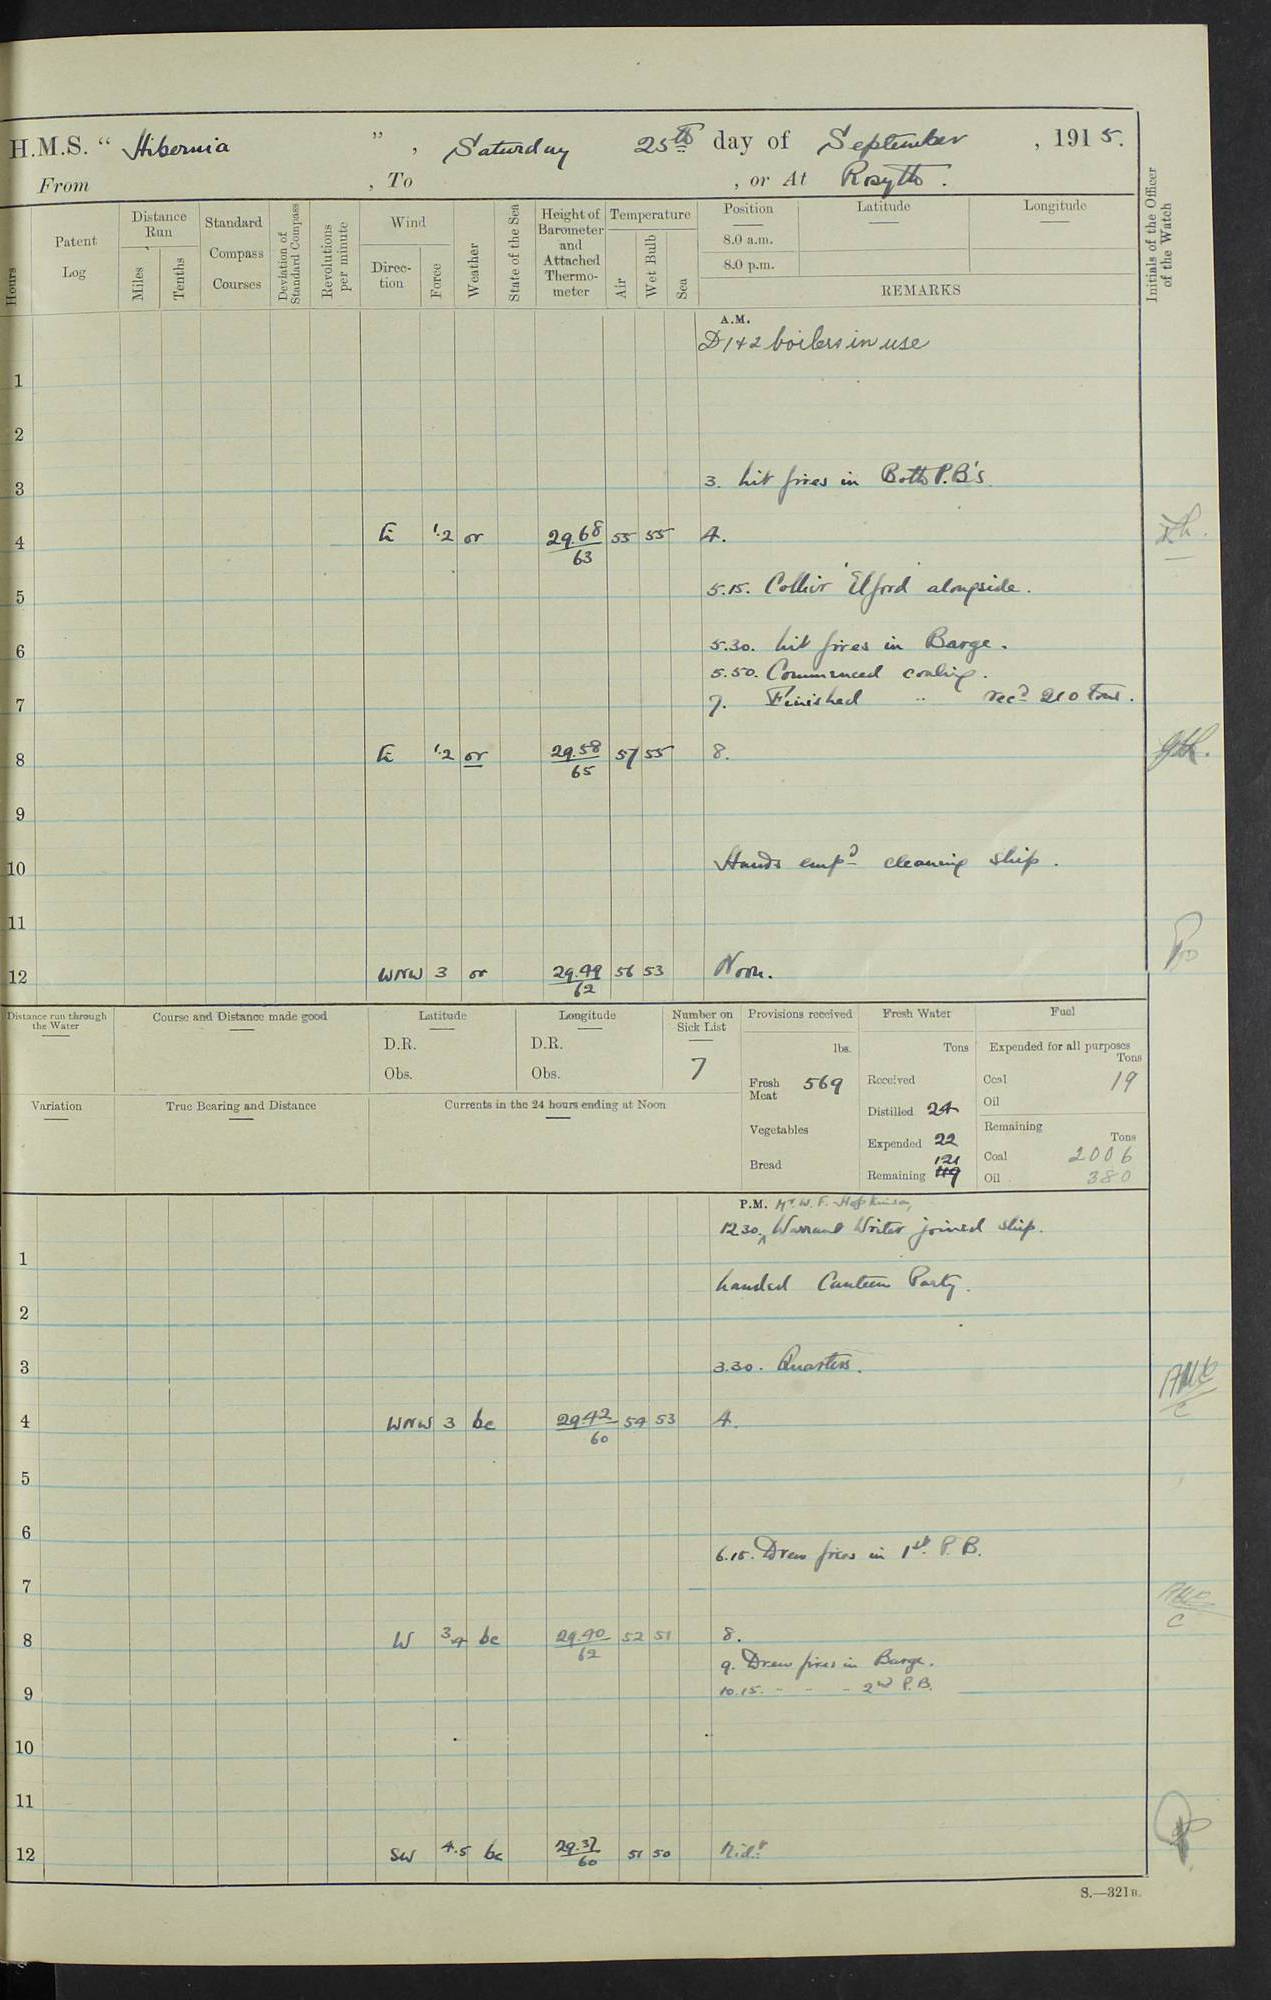 H.M.S. " Hibernia ", Saturday 25th day of September, 1915.
From , To , or At Rosyth.
Hours
Patent Log
Distance Run
Miles
Tenths
Standard Compass Courses
Deviation of Standard Compass
Revolutions per minute
Wind
Direction
Force
Weather
State of the Sea
Height of Barometer and Attached Thermometer
Temperature
Air
Wet Bulb
Sea
Position
Latitude
Longitude
8.0 a.m.
8.0 p.m.
REMARKS
Initials of the Officer of the Watch
A.M.
D 1+2 boilers in use
1
2
3 3. lit fires in Both P.B's
4 E 1.2 or 29.68/63 55 55 4.
5 5.15. Collier 'Elford' alongside.
6 5.30. lit fires in Barge.
5.50. Commenced coaling.
7 7. Finished " recd 210 Tons.
8 E 1.2 or 29.58/65 57 55 8.
9
10 Hands empd cleaning ship.
11
12 WNW 3 or 29.49/62 56 53 Noon.
Distance run through the Water
Course and Distance made good
Latitude
D.R.
Obs.
Longitude
D.R.
Obs.
Number on Sick List
7
Variation
True Bearing and Distance
Currents in the 24 hours ending at Noon
Provisions received
lbs.
Fresh Meat 569
Vegetables
Bread
Fresh Water
Tons
Received
Distilled 24
Expended 22
121
Remaining 119
Fuel
Expended for all purposes
Tons
Coal 19
Oil
Remaining
Tons
Coal 2006
Oil 380
P.M. Mr. W. F. Hopkinson,
12.30. Warrant Writer joined ship.
1
landed Canteen Party.
2
3 3.30. Quarters.
4 WNW 3 bc 29.42/60 54 53 4.
5
6
6.15. Drew fires in 1st P.B.
7
8 W 3.4 bc 29.40/62 52 51 8.
9. Drew fires in Barge.
9 10.15. - - - 2nd P.B.
10
11
12 SW 4.5 bc 29.37/60 51 50 Midt
S.—321B.